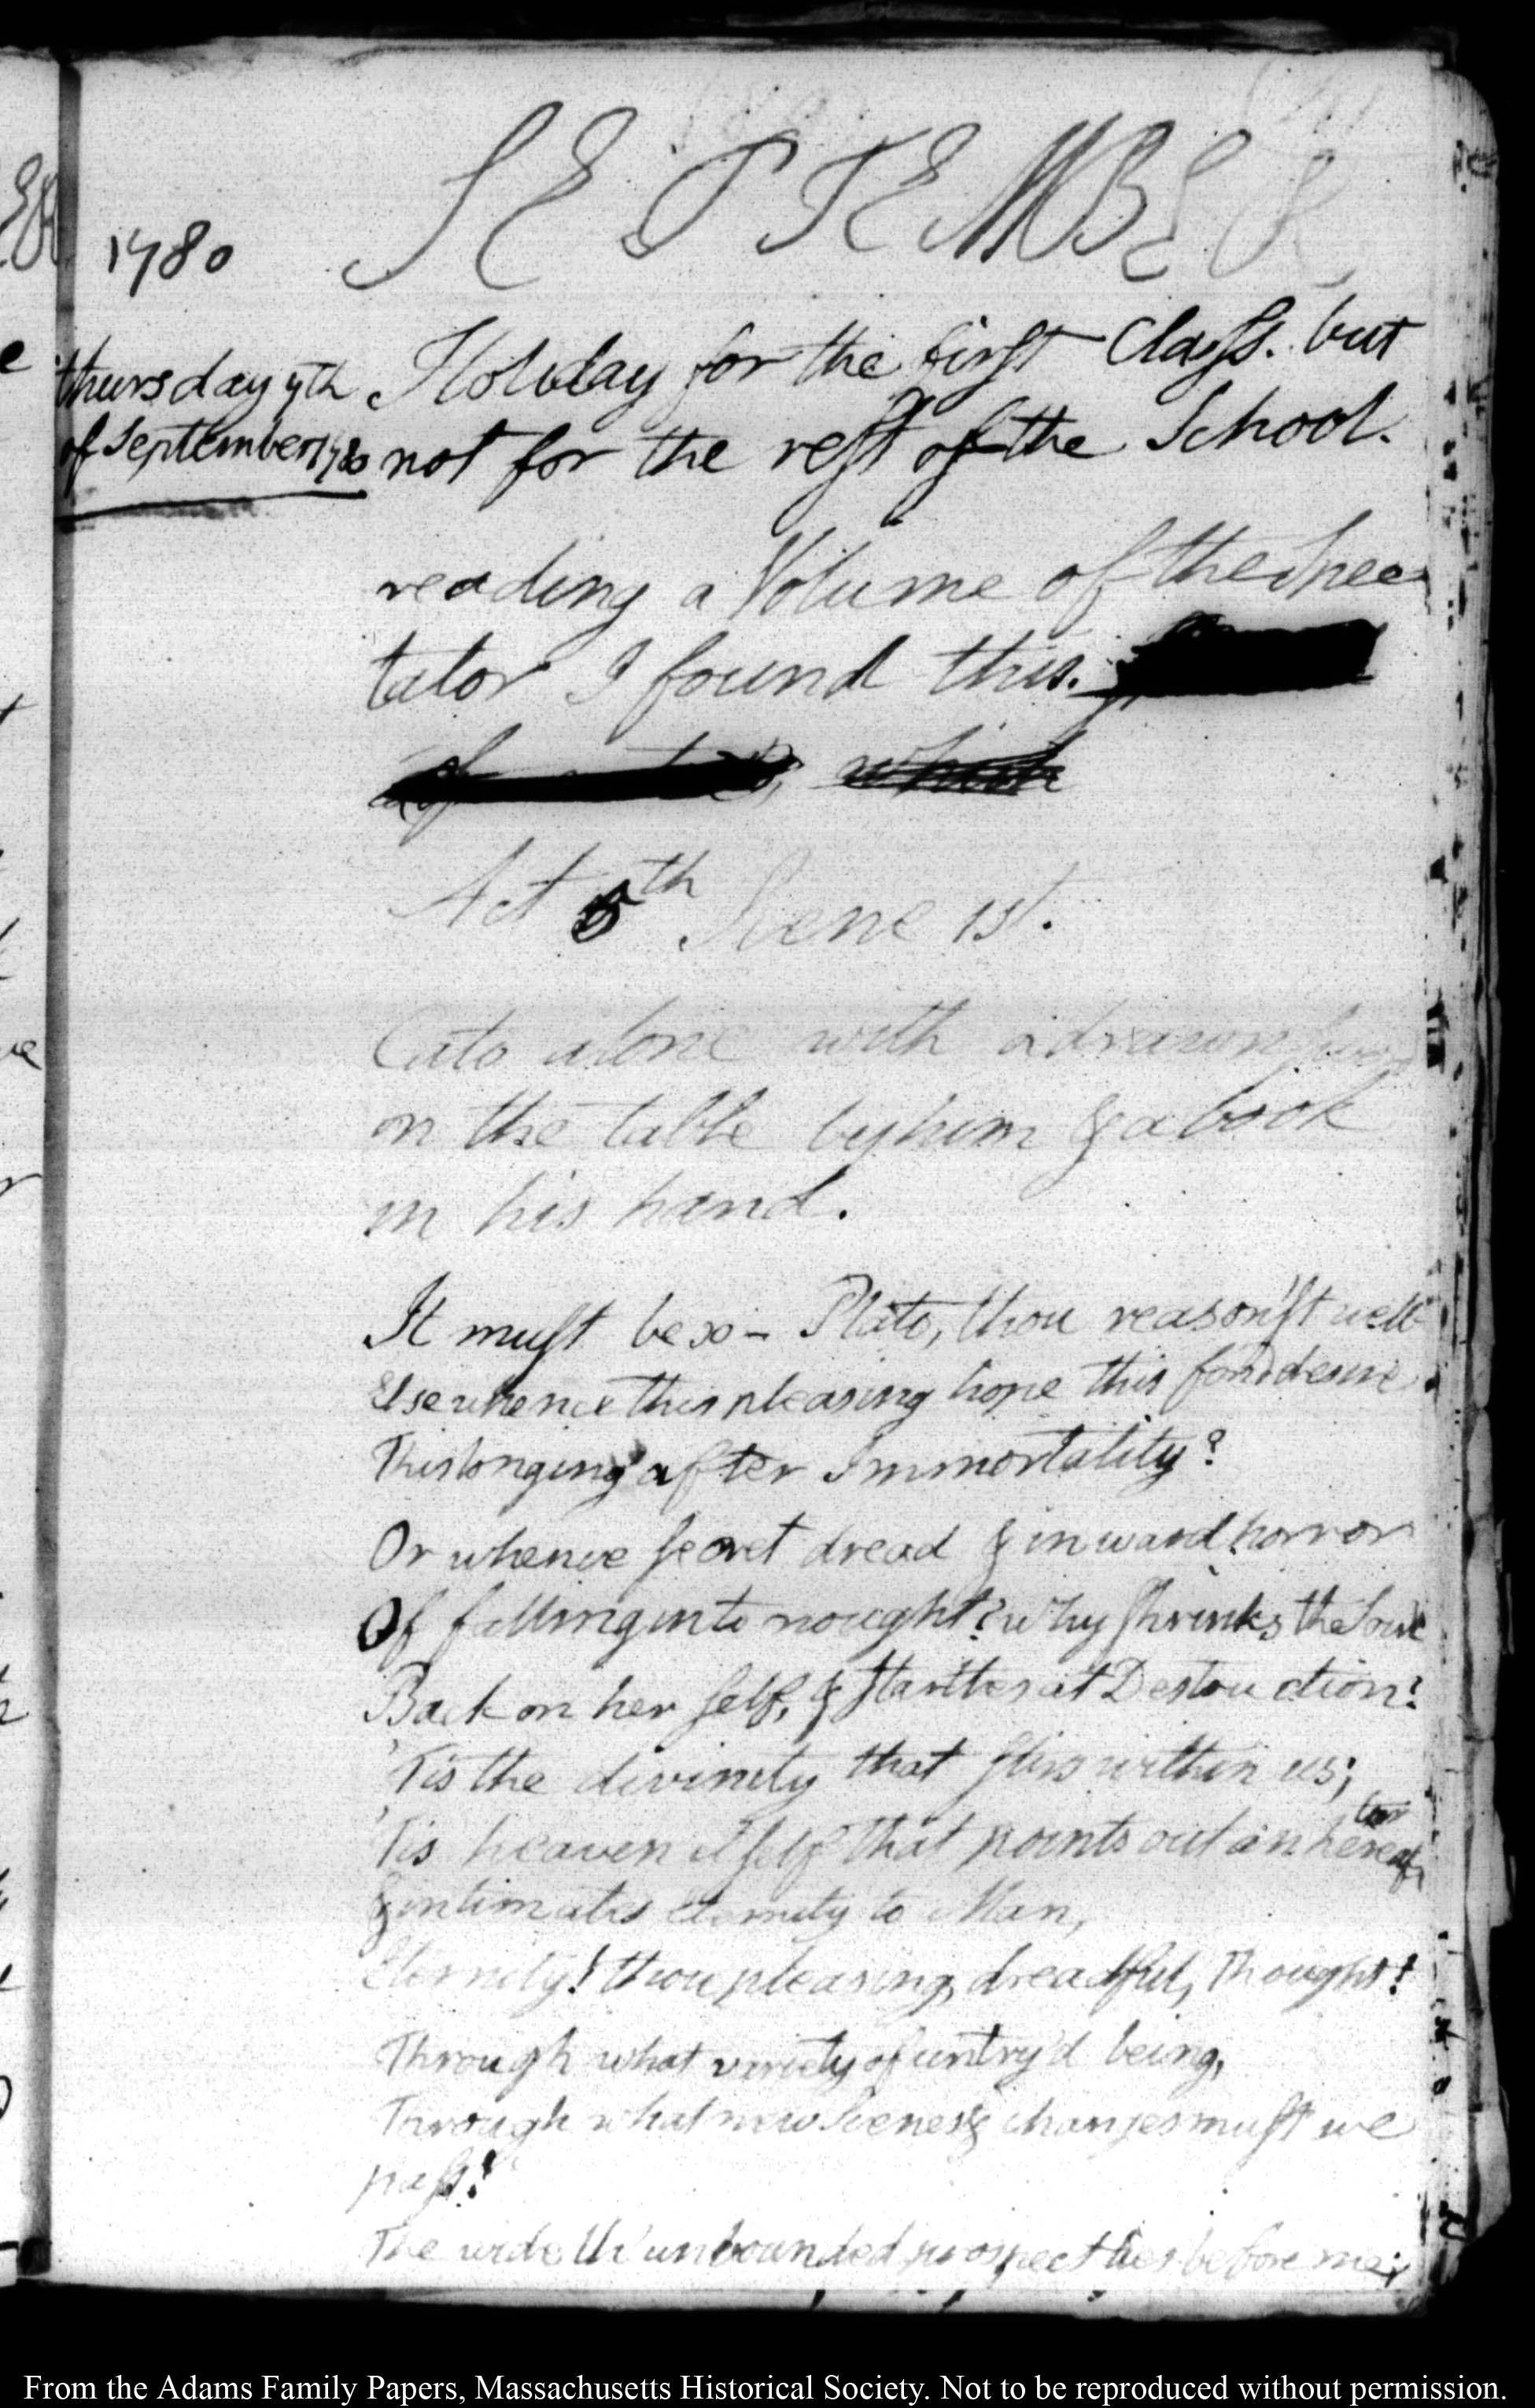 SEPTEMBER
1780
thursday 7th
of September 1780
Holiday for the first Class. but
not for the rest of the School.
reading a Volume of the Spec
tator I found this.
which
Act 5th Scene 1st.
Cato alone with a drawn
on the table by him & a book
in his hand.
It must be so – Plato, thou reason'st well
Else whence this pleasing hope this fond desire
This longing after Immortality?
Or whence secret dread & inward horror
Of falling into nought? why shrinks the Soul
Back on her self, & startles at Destruction?
'Tis the divinity that stirs within us;
'Tis heaven itself that points out an hereaf
ter
& intimates eternity to Man,
Eternity! thou pleasing, dreadful, Thought!
Through what variety of untry'd being,
Through what new Scenes & changes must we
pass!
The wide th' unbounded prospect lies before me;
From the Adams Family Papers, Massachusetts Historical Society. Not to be reproduced without permission.